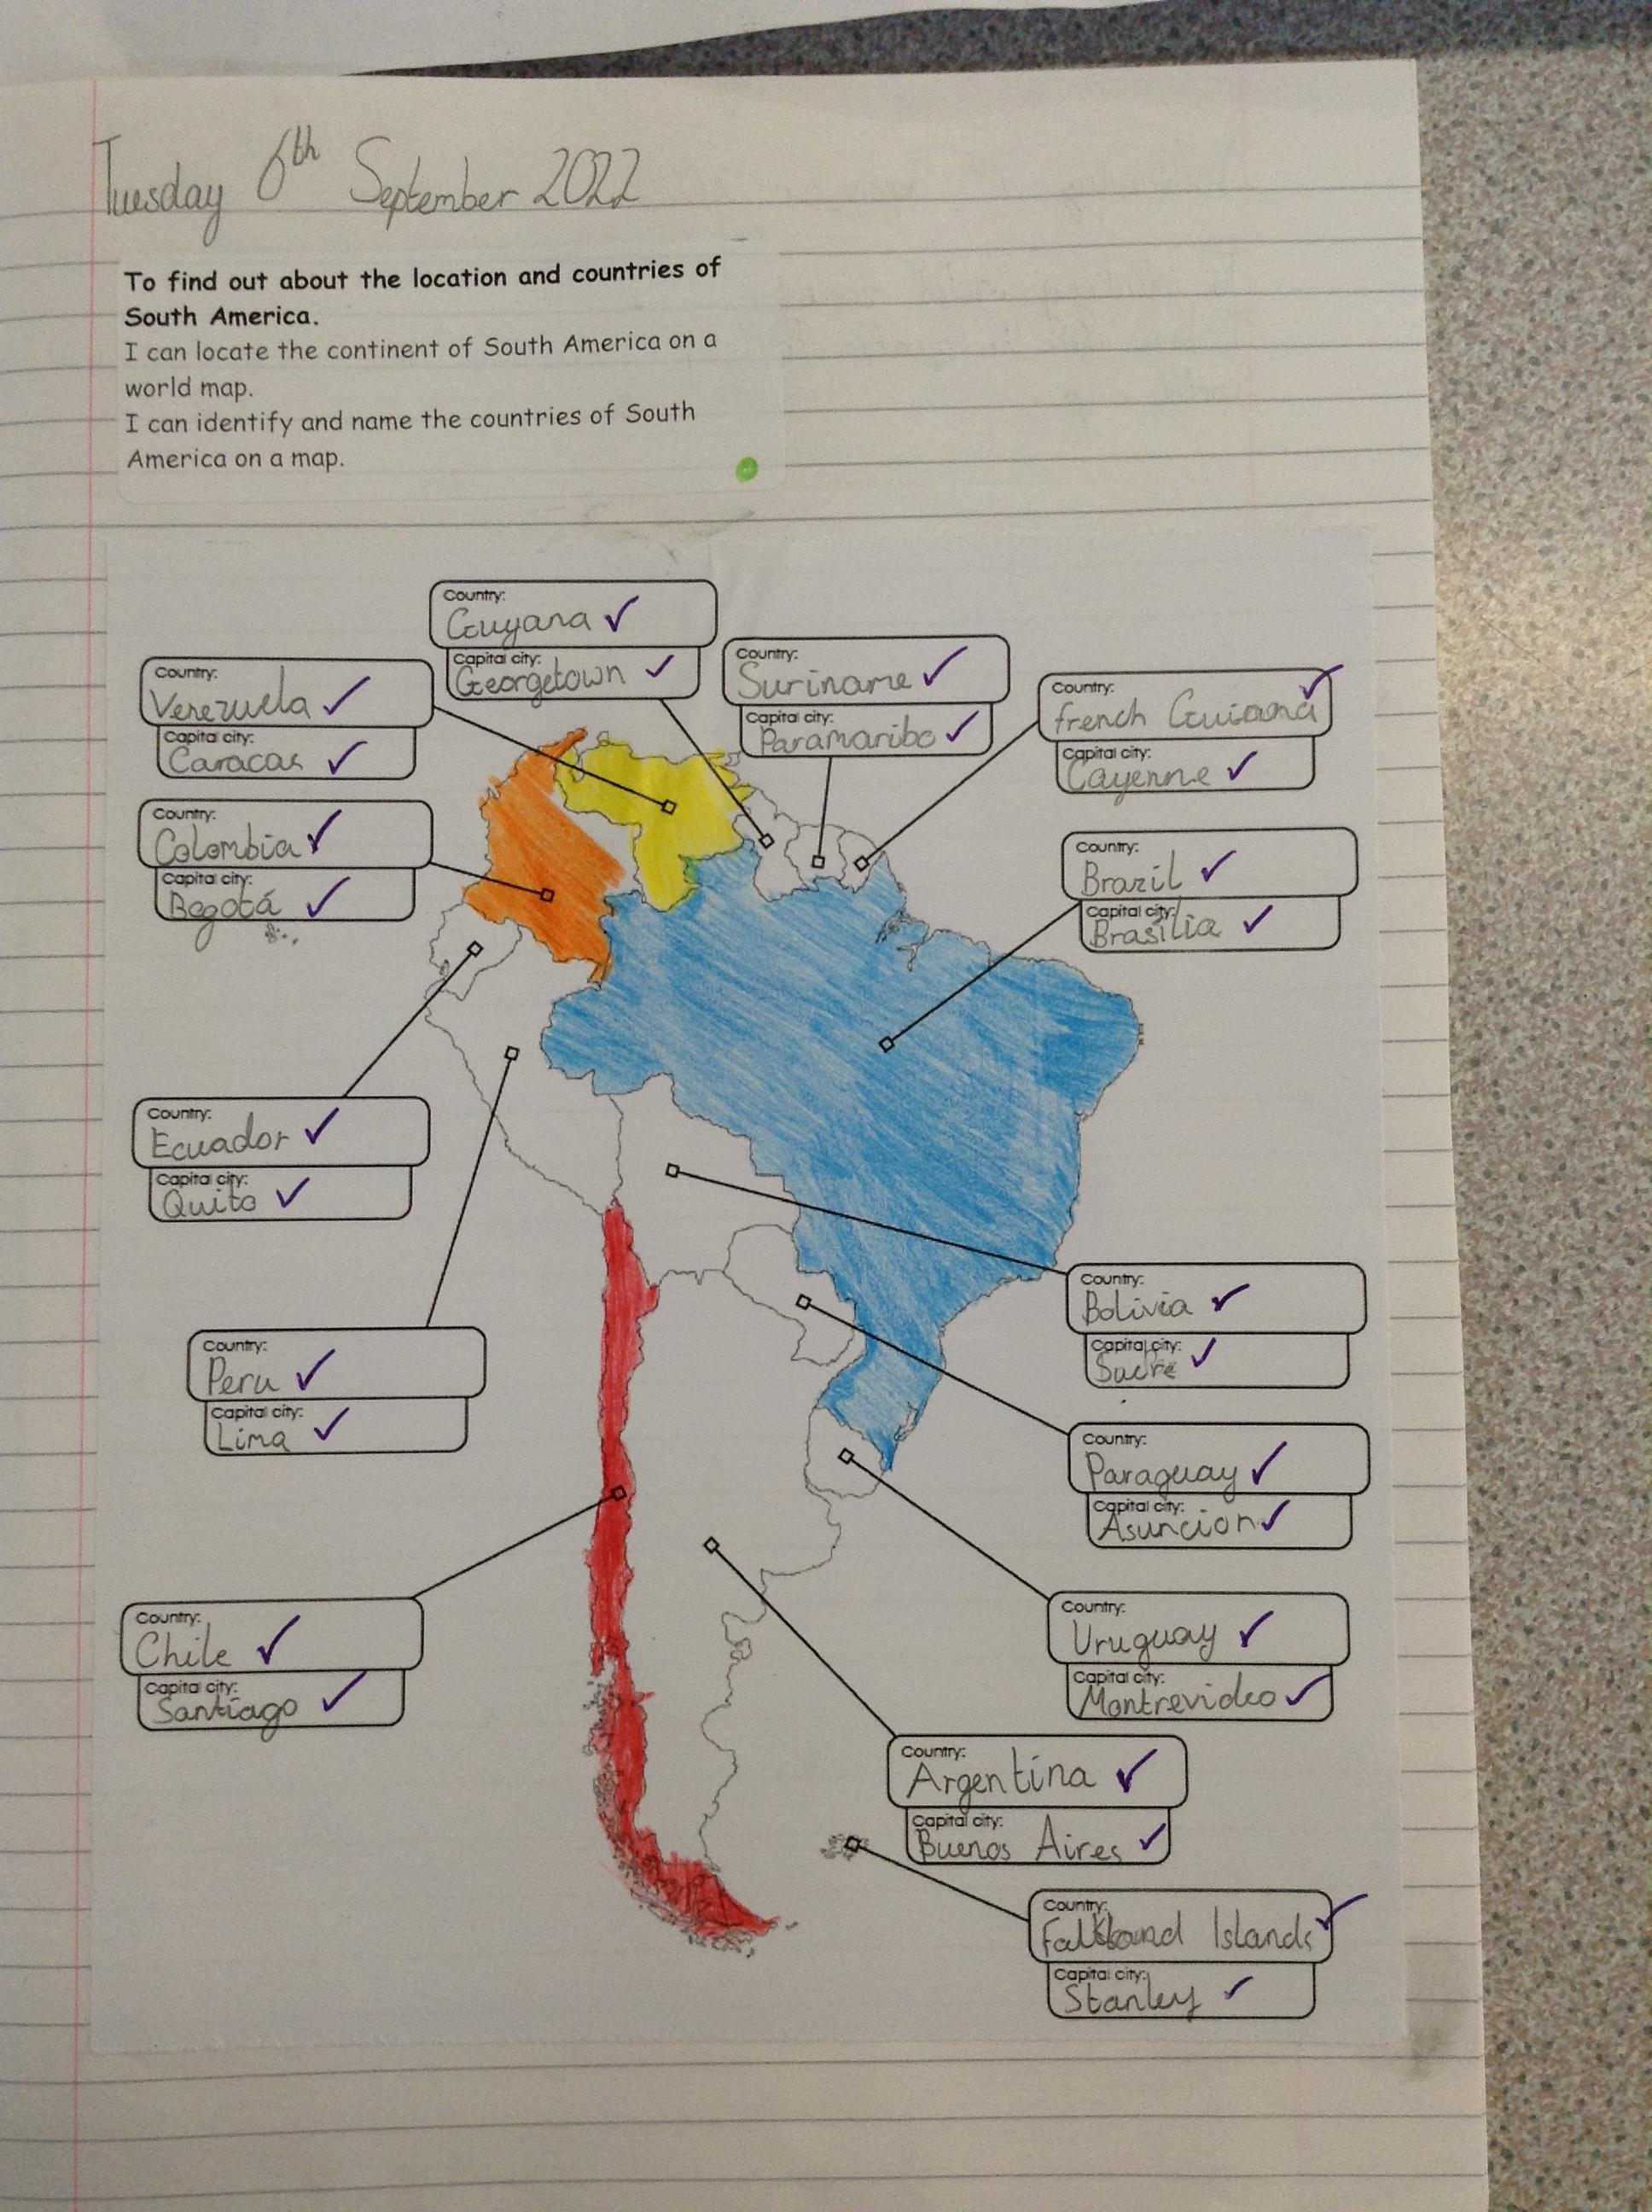 Tuesday 6th September 2022
To find out about the location and countries of
South America.
I can locate the continent of South America on a
world map.
I can identify and name the countries of South
America on a map.
Country:
Guyana
Capital city:
Georgetown
Country:
Suriname
Capital city:
Paramaribo
Country:
Venezuela
Capital city:
Caracas
Country:
french Guiana
Capital city:
Cayenne
Country:
Colombia
Capital city:
Bogotá
Country:
Brazil
Capital city:
Brasília
Country:
Ecuador
Capital city:
Quito
Country:
Bolivia
Capital city:
Sucre
Country:
Peru
Capital city:
Lima
Country:
Paraguay
Capital city:
Asuncion
Country:
Chile
Capital city:
Santiago
Country:
Uruguay
Capital city:
Montrevideo
Country:
Argentina
Capital city:
Buenos Aires
Country:
Falkland Islands
Capital city:
Stanley